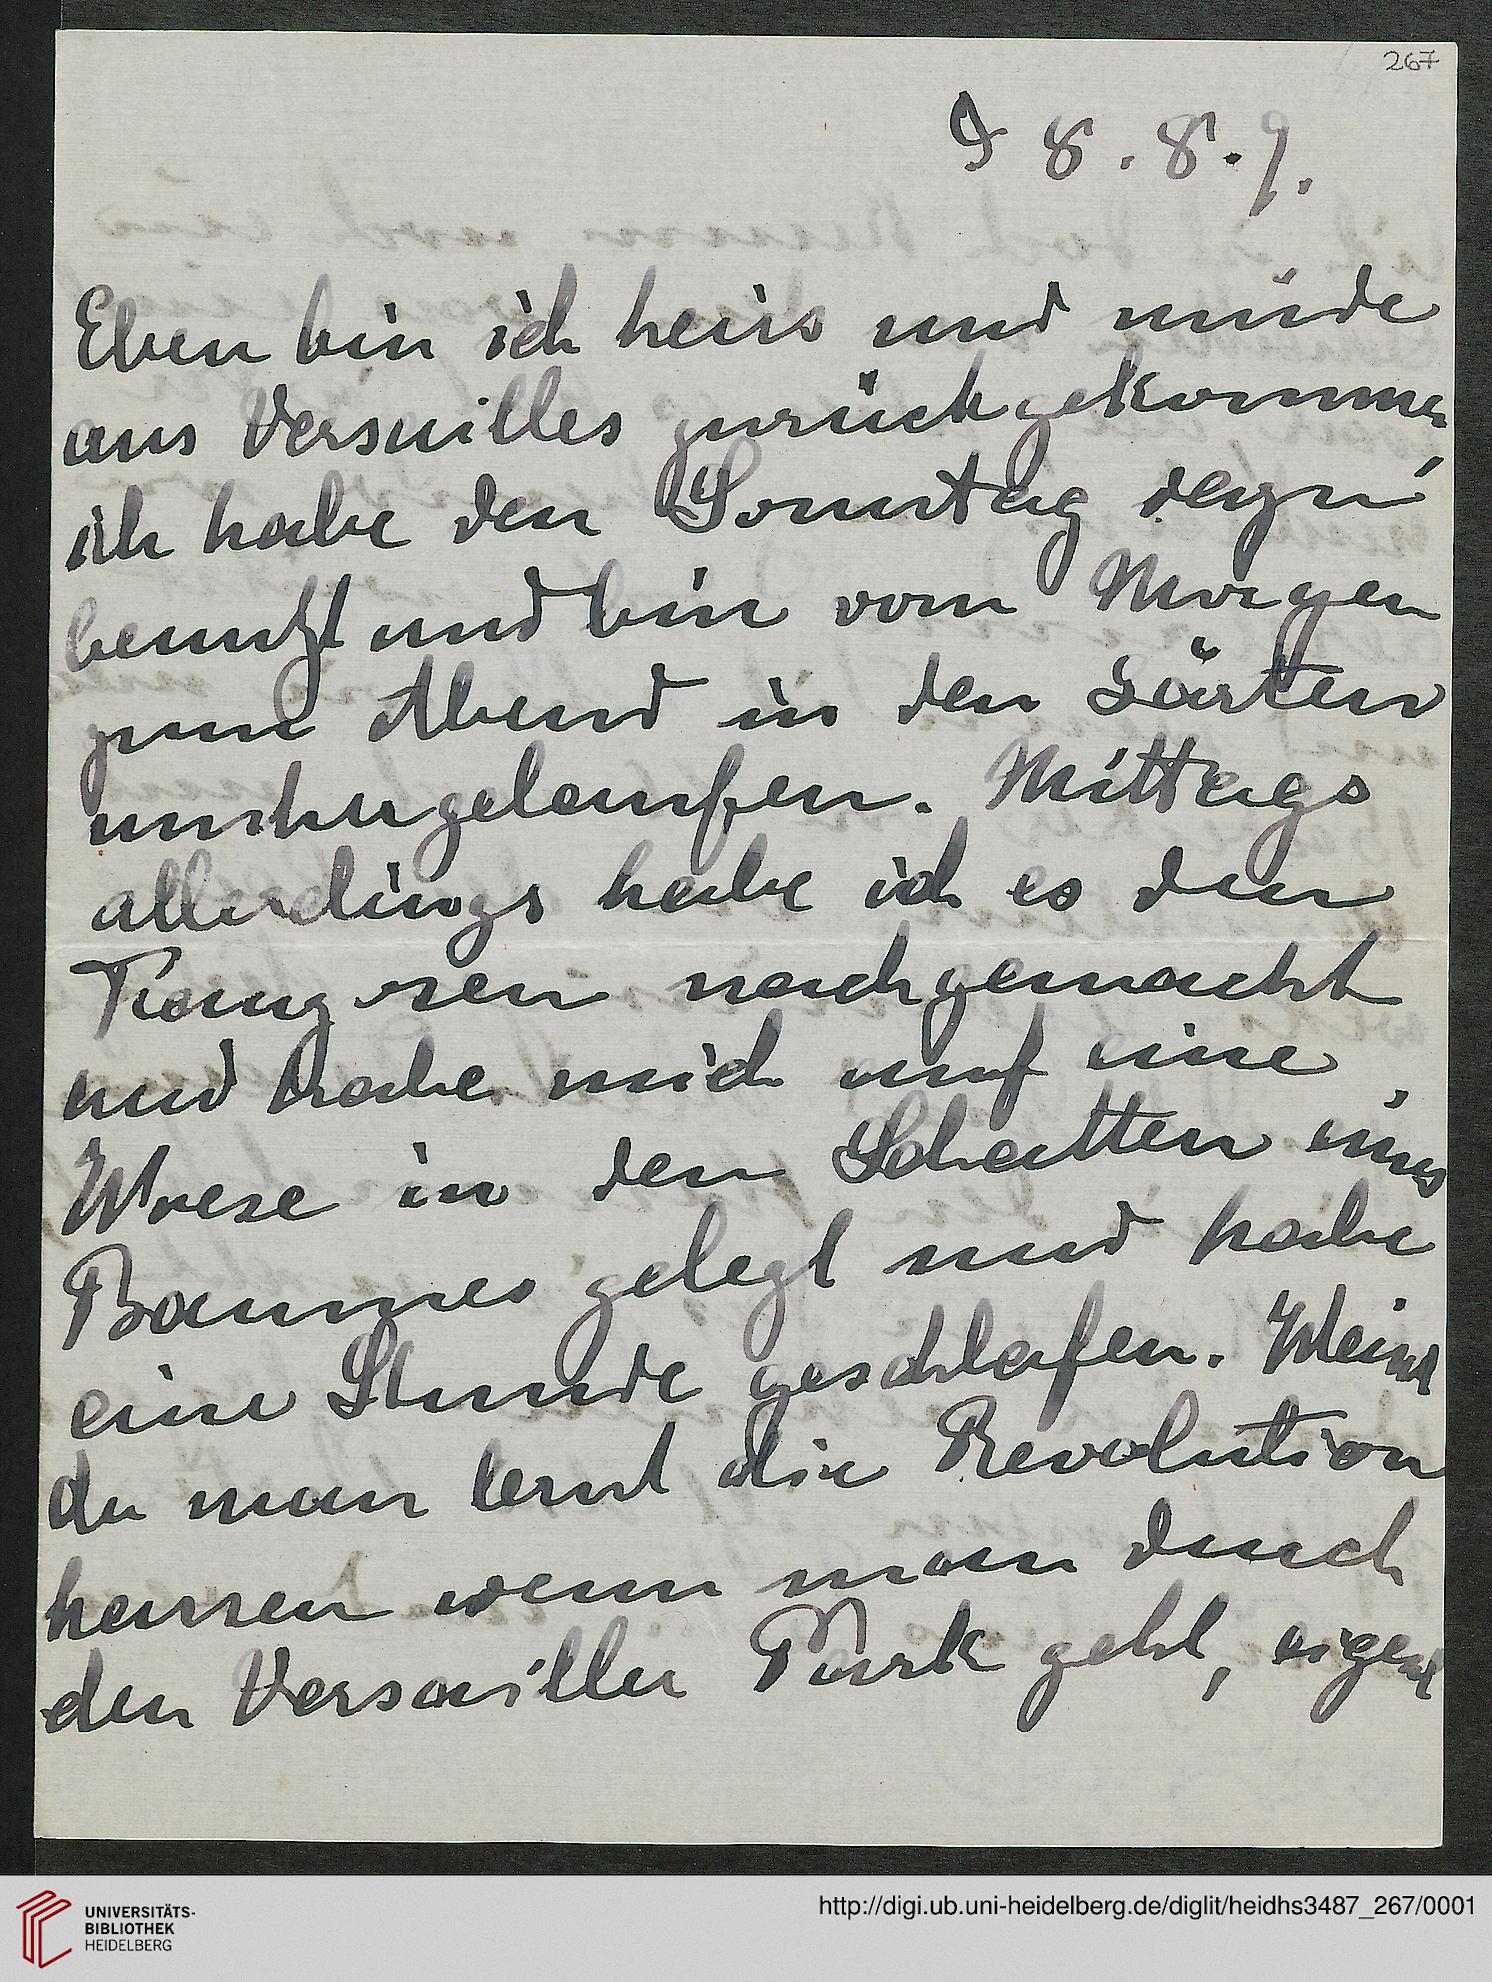 267
8.8.9.
Eben bin ich heiss und müde
aus Versailles zurückgekommen,
ich habe den Sonntag dazu
benutzt und bin vom Morgen
zum Abend in den Gärten
umhergelaufen. Mittags
allerdings habe ich es den
Franzosen nachgemacht
und habe mich auf eine
Wiese in den Schatten eines
Baumes gelegt und habe
eine Stunde geschlafen. Weisst
du man lernt die Revolution
hassen wenn man durch
den Versailler Park geht,
UNIVERSITÄTS-
BIBLIOTHEK
HEIDELBERG
http://digi.ub.uni-heidelberg.de/diglit/heidhs3487_267/0001